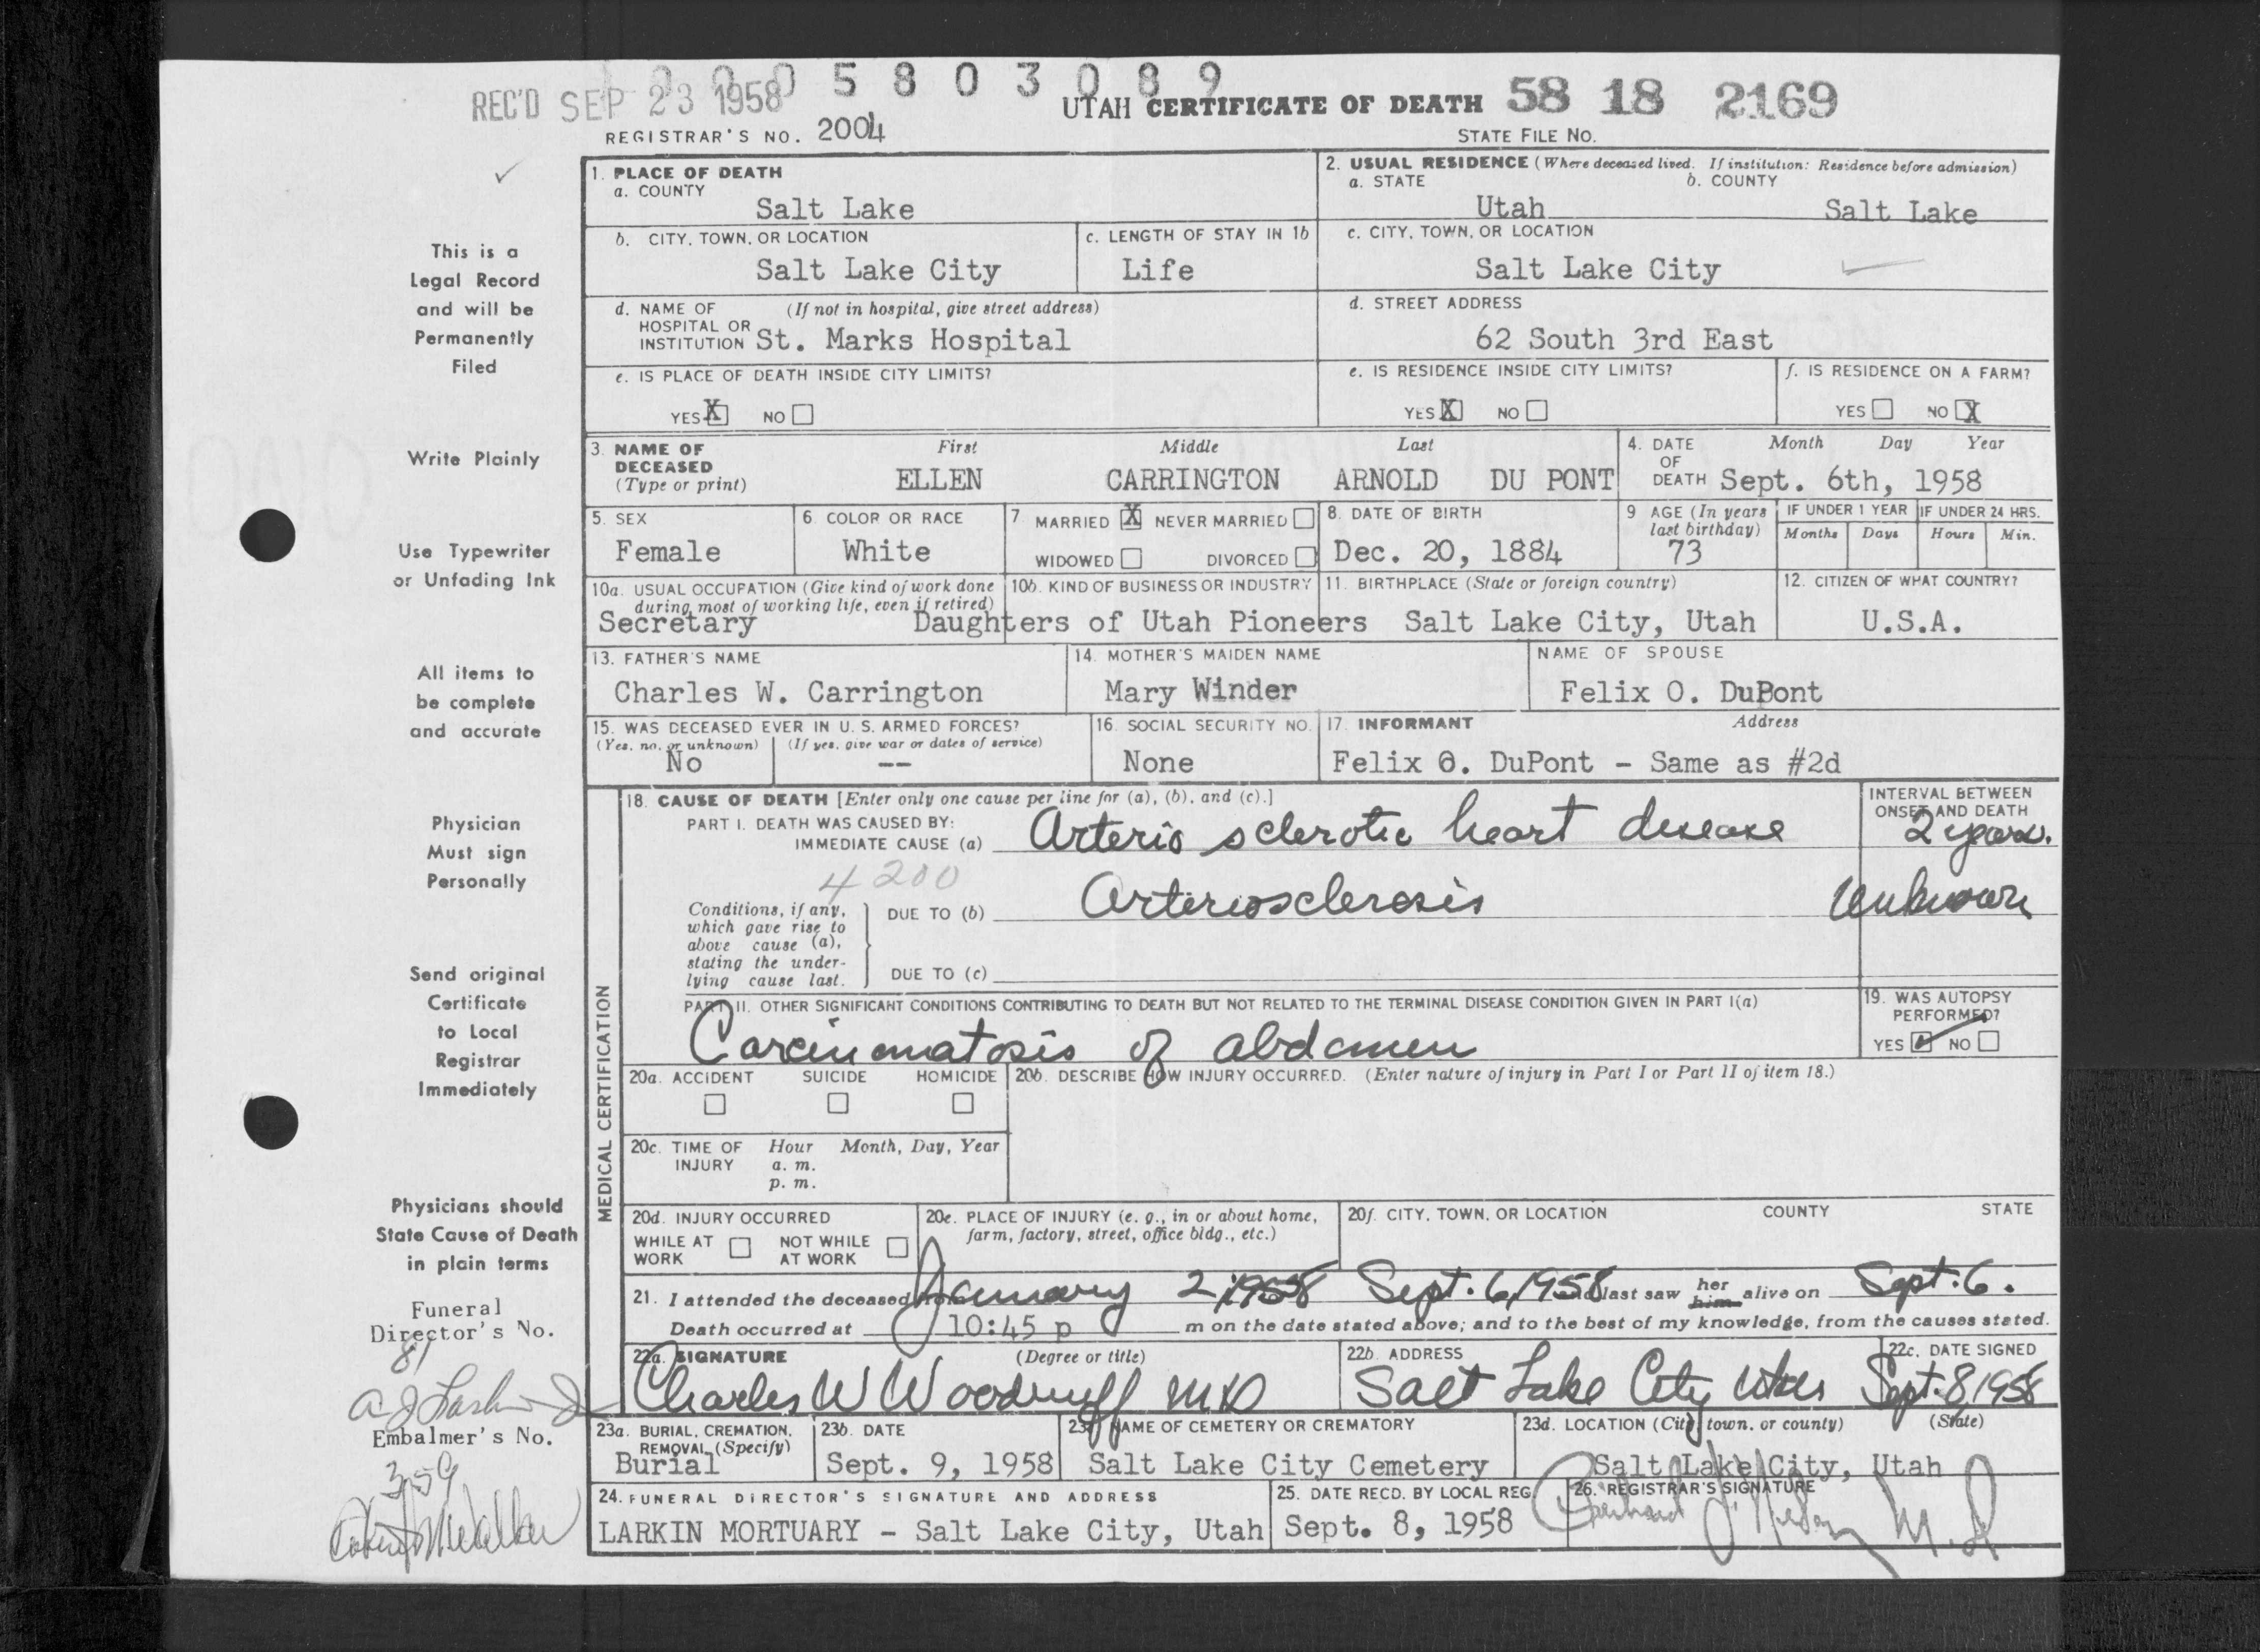 2 0 0 5 8 0 3 0 8 9
REC'D SEP 23 1958
UTAH CERTIFICATE OF DEATH 58 18 2169
REGISTRAR'S NO. 2004
STATE FILE NO.
This is a
Legal Record
and will be
Permanently
Filed
Write Plainly
Use Typewriter
or Unfading Ink
All items to
be complete
and accurate
Physician
Must sign
Personally
Send original
Certificate
to Local
Registrar
Immediately
Physicians should
State Cause of Death
in plain terms
Funeral
Director's No.
81
Embalmer's No.
359
1. PLACE OF DEATH
a. COUNTY
Salt Lake
2. USUAL RESIDENCE (Where deceased lived. If institution: Residence before admission)
a. STATE b. COUNTY
Utah Salt Lake
b. CITY, TOWN, OR LOCATION
Salt Lake City
c. LENGTH OF STAY IN 1b
Life
c. CITY, TOWN, OR LOCATION
Salt Lake City
d. NAME OF (If not in hospital, give street address)
HOSPITAL OR
INSTITUTION St. Marks Hospital
d. STREET ADDRESS
62 South 3rd East
e. IS PLACE OF DEATH INSIDE CITY LIMITS?
YES X NO
e. IS RESIDENCE INSIDE CITY LIMITS?
YES X NO
f. IS RESIDENCE ON A FARM?
YES NO X
3. NAME OF
DECEASED
(Type or print)
First Middle Last
ELLEN CARRINGTON ARNOLD DU PONT
4. DATE Month Day Year
OF
DEATH Sept. 6th, 1958
5. SEX
Female
6. COLOR OR RACE
White
7. MARRIED X NEVER MARRIED
WIDOWED DIVORCED
8. DATE OF BIRTH
Dec. 20, 1884
9 AGE (In years
last birthday)
73
IF UNDER 1 YEAR IF UNDER 24 HRS.
Months Days Hours Min.
10a. USUAL OCCUPATION (Give kind of work done
during most of working life, even if retired)
Secretary
10b. KIND OF BUSINESS OR INDUSTRY
Daughters of Utah Pioneers
11. BIRTHPLACE (State or foreign country)
Salt Lake City, Utah
12. CITIZEN OF WHAT COUNTRY?
U.S.A.
13. FATHER'S NAME
Charles W. Carrington
14. MOTHER'S MAIDEN NAME
Mary Winder
NAME OF SPOUSE
Felix O. DuPont
15. WAS DECEASED EVER IN U. S. ARMED FORCES?
(Yes, no, or unknown) (If yes, give war or dates of service)
No --
16. SOCIAL SECURITY NO.
None
17. INFORMANT Address
Felix O. DuPont - Same as #2d
MEDICAL CERTIFICATION
18. CAUSE OF DEATH [Enter only one cause per line for (a), (b), and (c).]
PART I. DEATH WAS CAUSED BY:
IMMEDIATE CAUSE (a) Arterio sclerotic heart disease
INTERVAL BETWEEN
ONSET AND DEATH
2 years.
4200
Conditions, if any,
which gave rise to
above cause (a),
stating the under-
lying cause last.
DUE TO (b) Arteriosclerosis Unknown
DUE TO (c)
PART II. OTHER SIGNIFICANT CONDITIONS CONTRIBUTING TO DEATH BUT NOT RELATED TO THE TERMINAL DISEASE CONDITION GIVEN IN PART I(a)
Carcinomatosis of abdomen
19. WAS AUTOPSY
PERFORMED?
YES NO
20a. ACCIDENT SUICIDE HOMICIDE
20b. DESCRIBE HOW INJURY OCCURRED. (Enter nature of injury in Part I or Part II of item 18.)
20c. TIME OF Hour Month, Day, Year
INJURY a. m.
p. m.
20d. INJURY OCCURRED
WHILE AT NOT WHILE
WORK AT WORK
20e. PLACE OF INJURY (e. g., in or about home,
farm, factory, street, office bldg., etc.)
20f. CITY, TOWN, OR LOCATION COUNTY STATE
21. I attended the deceased from January 2, 1958 Sept. 6, 1958 last saw her him alive on Sept. 6.
Death occurred at 10:45 p m on the date stated above; and to the best of my knowledge, from the causes stated.
22a. SIGNATURE (Degree or title)
Charles W Woodruff MD
22b. ADDRESS
Salt Lake City Utah
22c. DATE SIGNED
Sept. 8, 1958
23a. BURIAL, CREMATION,
REMOVAL (Specify)
Burial
23b. DATE
Sept. 9, 1958
23c. NAME OF CEMETERY OR CREMATORY
Salt Lake City Cemetery
23d. LOCATION (City, town, or county) (State)
Salt Lake City, Utah
24. FUNERAL DIRECTOR'S SIGNATURE AND ADDRESS
LARKIN MORTUARY - Salt Lake City, Utah
25. DATE RECD. BY LOCAL REG.
Sept. 8, 1958
26. REGISTRAR'S SIGNATURE
M.D